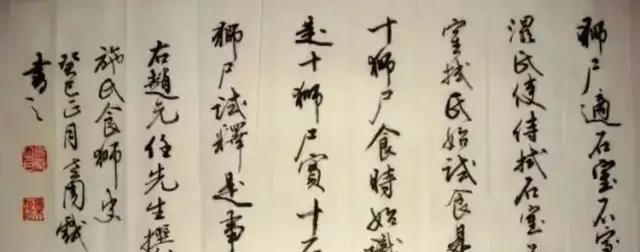 獅尸適石室石室
濕氏使侍拭石室
室拭氏始試食是
十獅尸食時始識
是十獅尸實十石
獅尸試釋是事
右趙元任先生撰
施氏食獅史
癸巳正月戲
書之